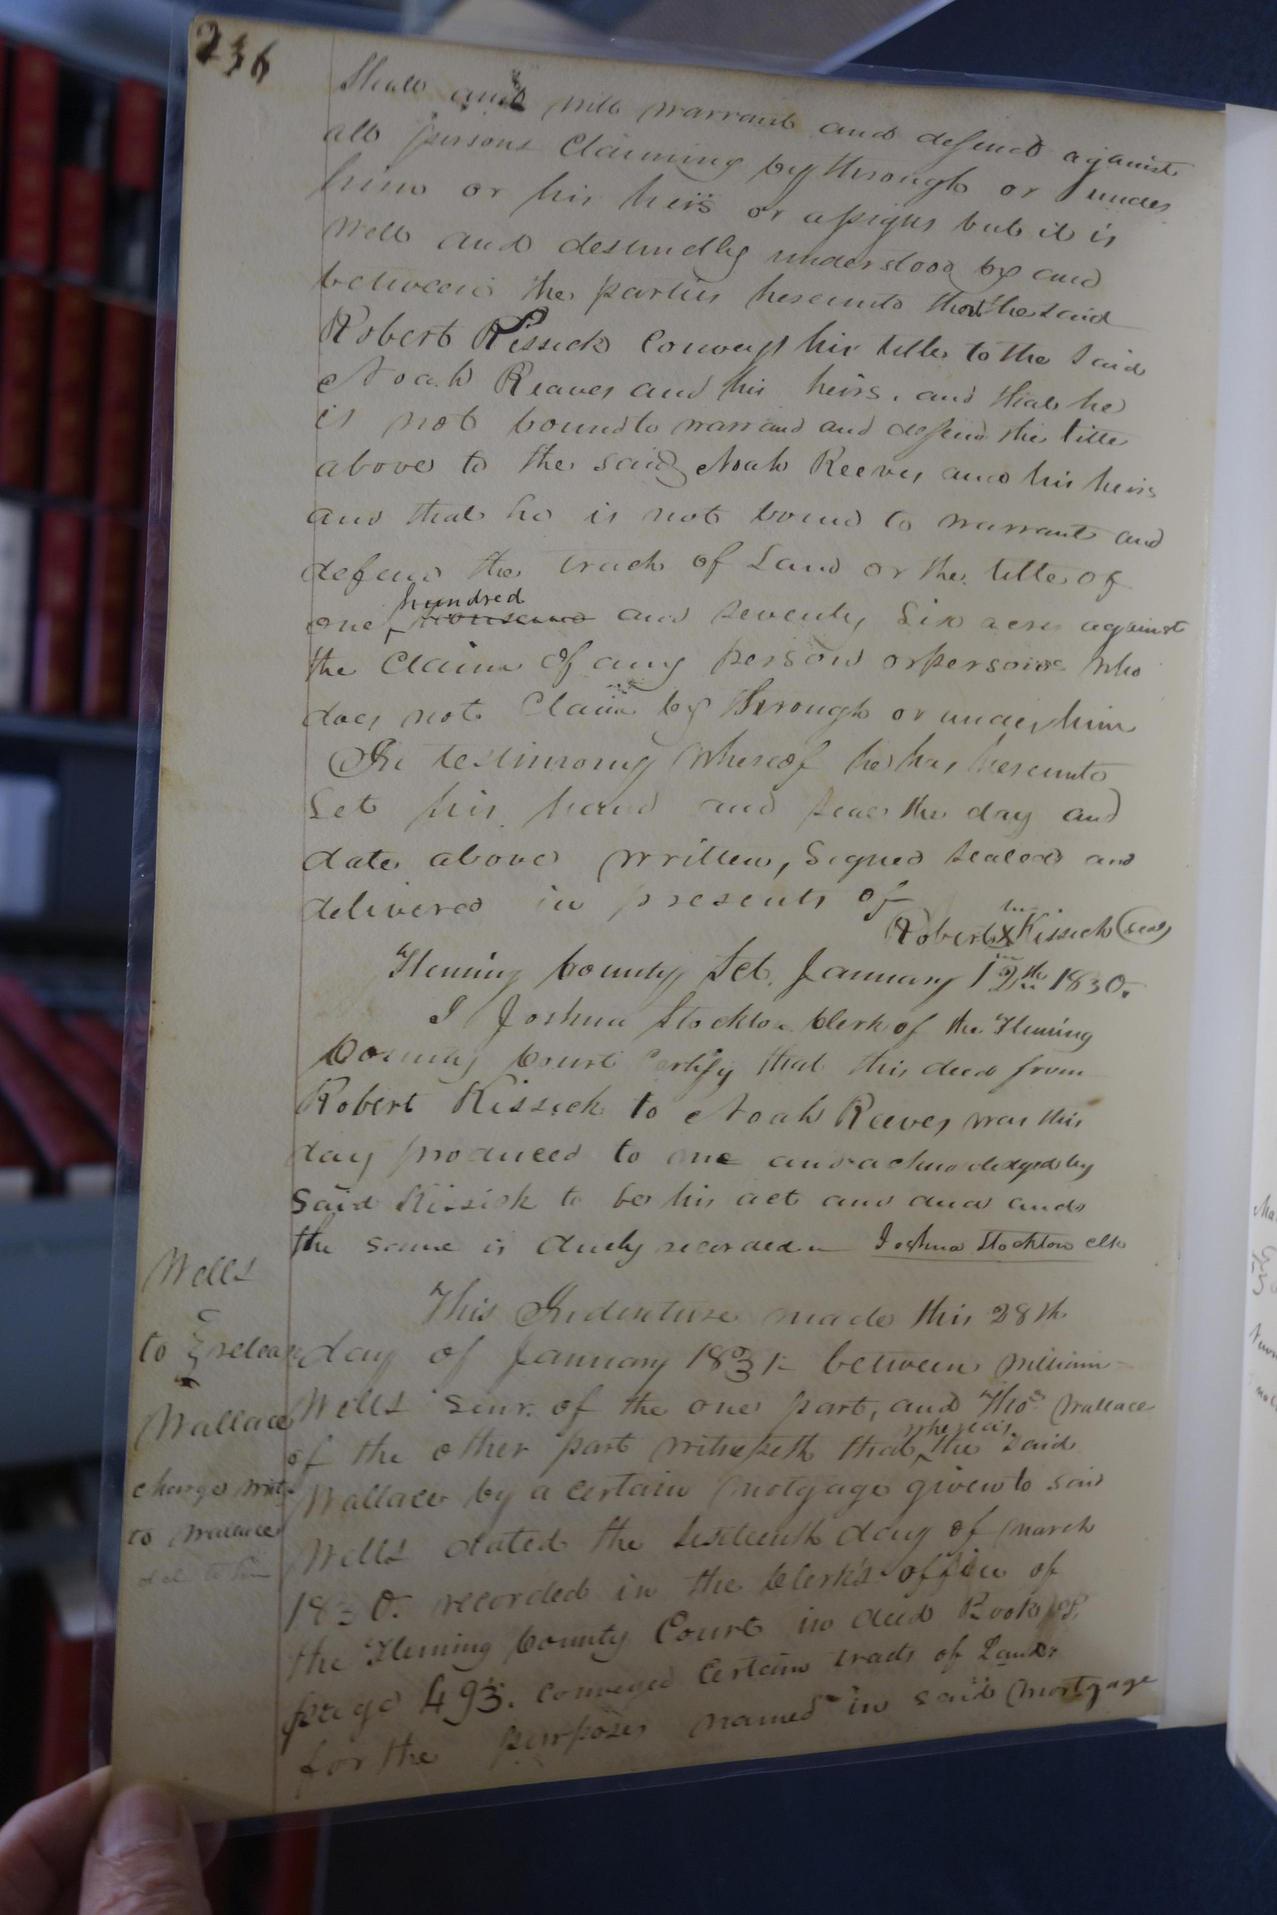 236
Shall and will warrant and defend against
all persons Claiming by through or under
him or his heirs or assigns but it is
well and destindly understood by and
between the parties hereunto that the said
Robert Kissick Conveys his title to the said
Noah Reaves and his heirs, and that he
is not bound to warrant and defend the title
above to the said Noah Reeves and his heirs
and that he is not bound to warrant and
defend the track of Land or the title of
one hundred and seventy Six acres against
the Claim of any person or persons who
does not Claim by through or under him
In testimony whereof he has hereunto
Set his hand and seal the day and
date above written, Signed sealed and
delivered in presents of
Robert X Kissick (seal)
Fleming County Sct. January 12th 1830.
I Joshua Stockton Clerk of the Fleming
County Court Certify that this deed from
Robert Kissick to Noah Reeves was this
day produced to me and acknowledged by
Said Kissick to be his act and deed and
the same is duely recorded Joshua Stockton clk
Wells
to release
Wallace
charge
to Wallace
This Indenture made this 28th
day of January 1831 between William
Wells Senr. of the one part, and Thos Wallace
of the other part witnesseth that whereas the said
Wallace by a certain motgage given to said
Wells dated the sixteenth day of March
1830. recorded in the Clerk's office of
the Fleming County Court in deed Book
page 493. conveyed Certain tracts of Land
for the purposes named in said mortgage